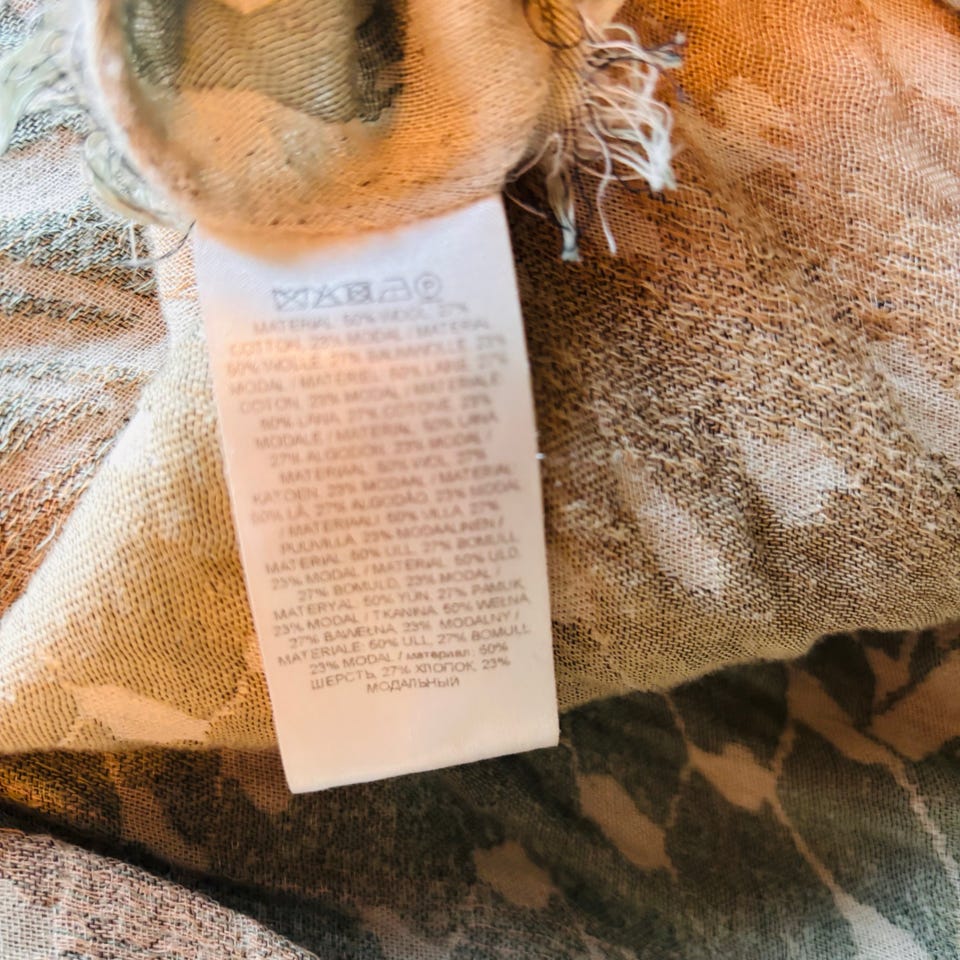 MATERIAL: 50% WOOL, 27%
COTTON, 23% MODAL / MATERIAL:
50% WOLLE, 27% BAUMWOLLE, 23%
MODAL / MATÉRIEL: 50% LAINE, 27%
COTON, 23% MODAL / MATERIALE:
50% LANA, 27% COTONE, 23%
MODALE / MATERIAL: 50% LANA,
27% ALGODÓN, 23% MODAL /
MATERIAAL: 50% WOL, 27%
KATOEN, 23% MODAAL / MATERIAL:
50% LÃ, 27% ALGODÃO, 23% MODAL
/ MATERIAALI: 50% VILLA, 27%
PUUVILLA, 23% MODAALINEN /
MATERIAL: 50% ULL, 27% BOMULL,
23% MODAL / MATERIAL: 50% ULD,
27% BOMULD, 23% MODAL /
MATERYAL: 50% YÜN, 27% PAMUK,
23% MODAL / TKANINA: 50% WEŁNA,
27% BAWEŁNA, 23% MODALNY /
MATERIALE: 50% ULL, 27% BOMULL,
23% MODAL / материал: 50%
ШЕРСТЬ, 27% ХЛОПОК, 23%
МОДАЛЬНЫЙ